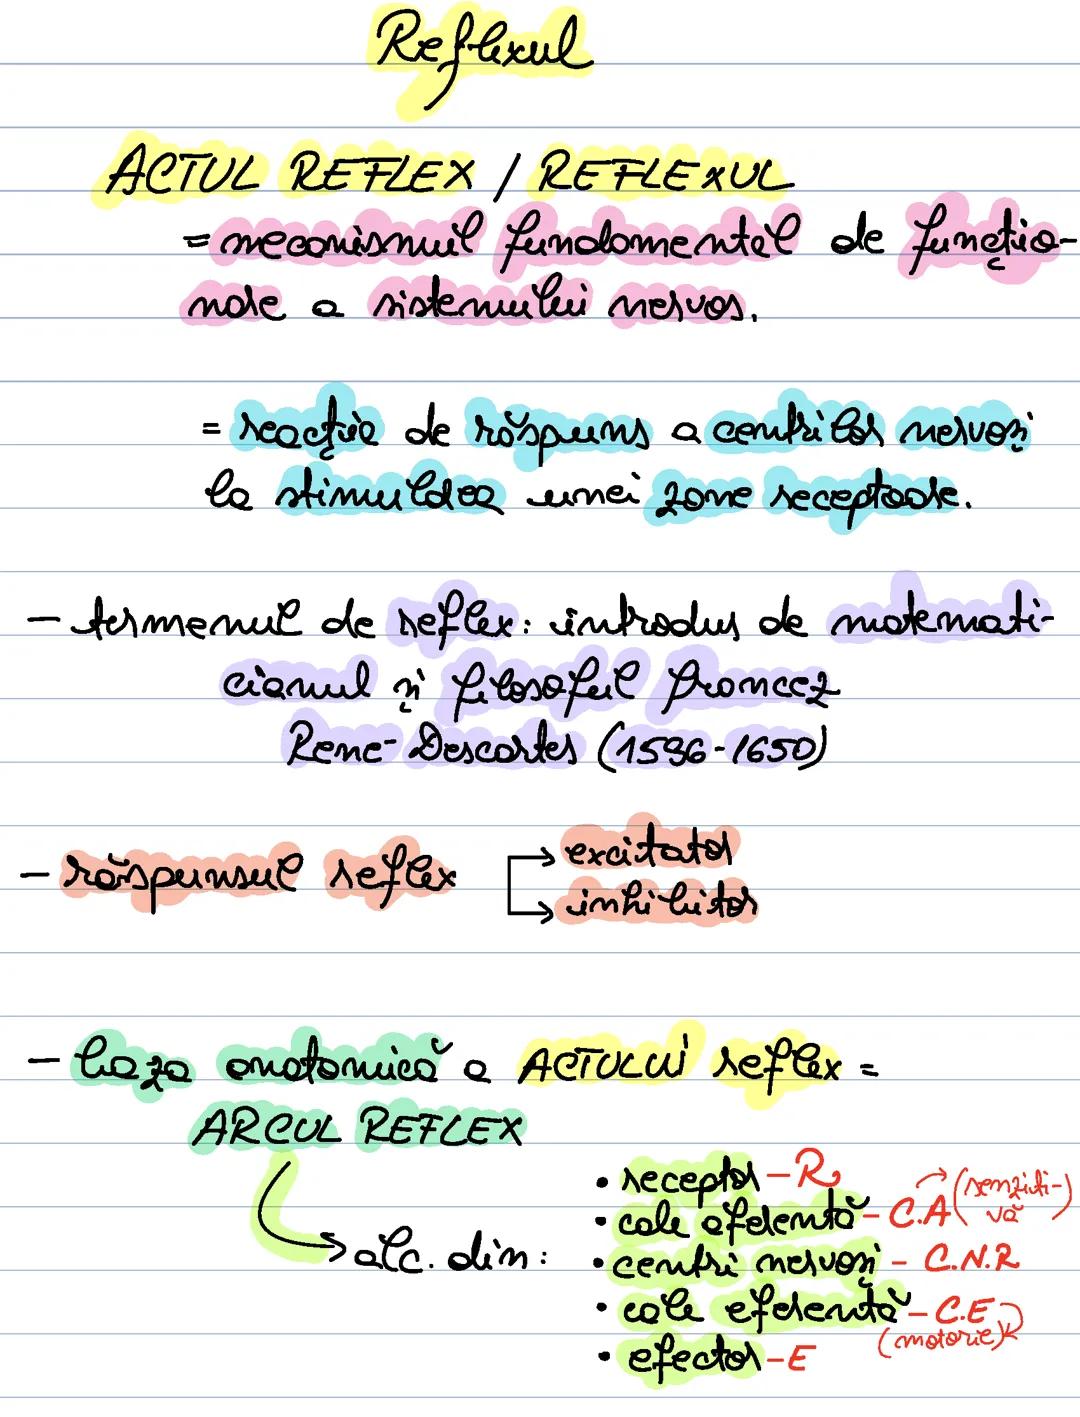 Reflexul
ACTUL REFLEX / REFLEXUL
= mecanismul fundamental de funcțio-
nare a sistemului nervos.
= reacție de răspuns a centrilor nervoși
la stimularea unei zone receptoare.
- termenul de reflex: introdus de matemati-
cianul și filosoful francez
Rene-Descartes (1596-1650)
- răspunsul reflex → excitator
→ inhibitor
- baza anatomică a ACTULUI reflex =
ARCUL REFLEX
→ alc. din:
• receptor - R
• cale aferentă - C.A → (senziti-
vă)
• centri nervoși - C.N.R
• cale eferentă - C.E
(motorie)
• efector - E